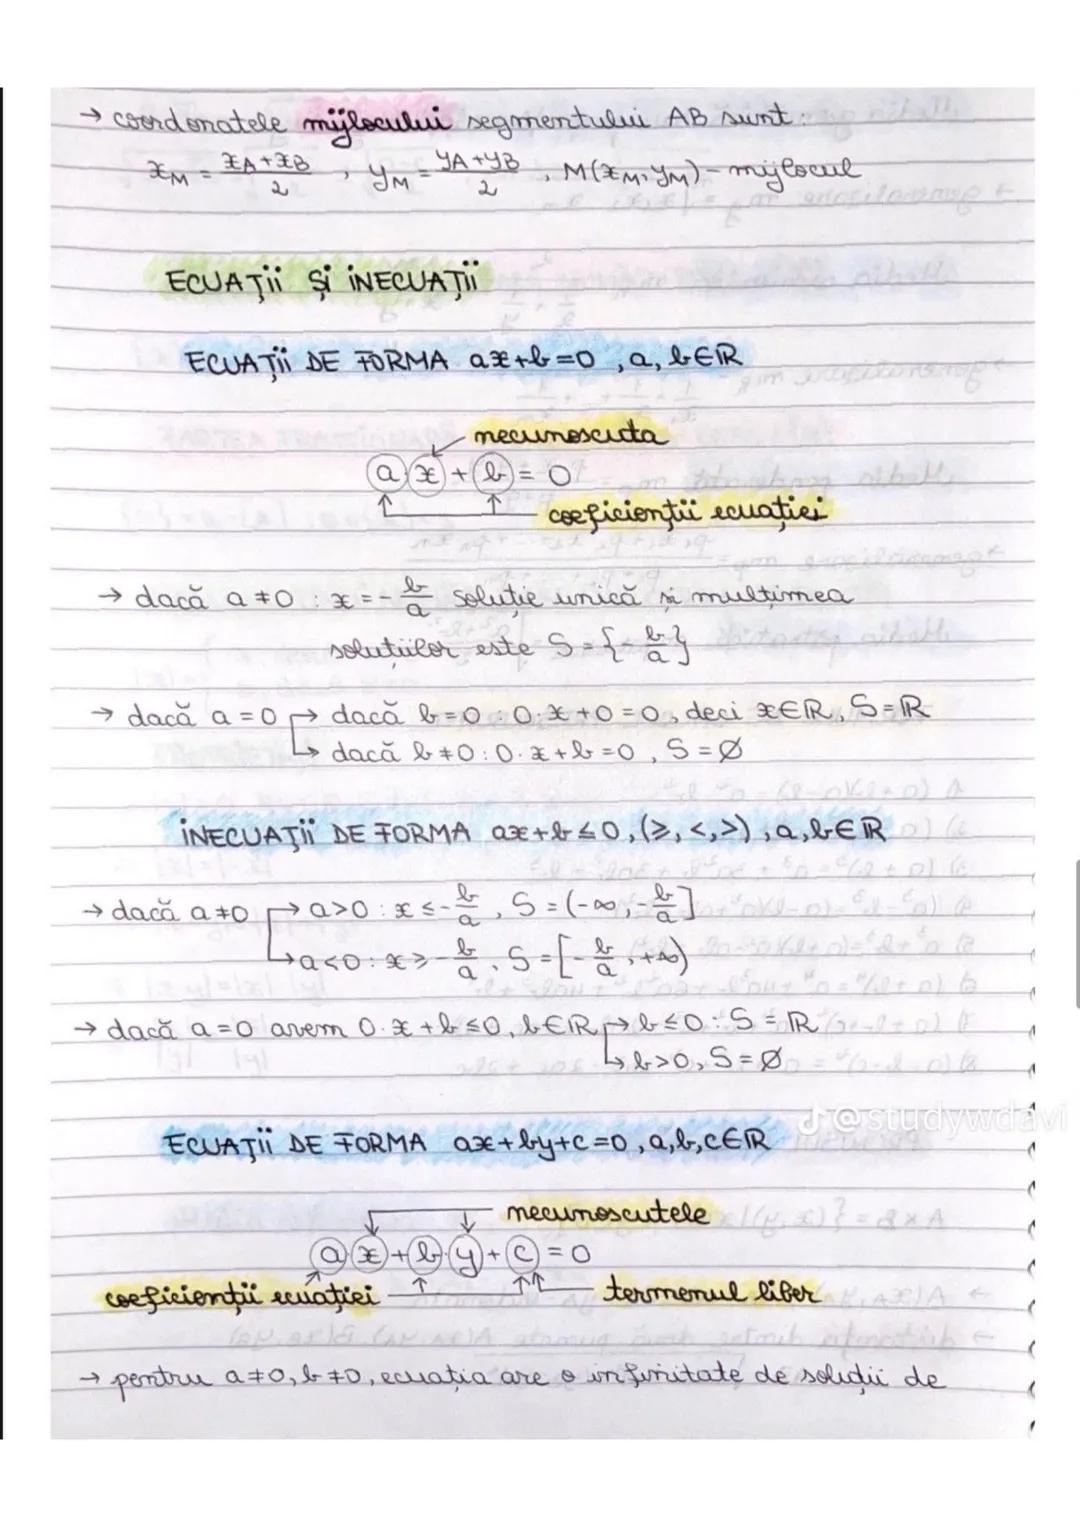 → coordonatele mijlocului segmentului AB sunt:
x_M = (x_A + x_B)/2 , y_M = (y_A + y_B)/2 , M(x_M, y_M) - mijlocul
ECUAȚII ȘI INECUAȚII
ECUAȚII DE FORMA ax+b=0, a, b∈ℝ
necunoscuta
a·x + b = 0
coeficienții ecuației
→ dacă a≠0 : x = -b/a soluție unică și mulțimea
soluțiilor este S = {-b/a}
→ dacă a=0 → dacă b=0 : 0·x+0=0, deci x∈ℝ, S=ℝ
↳ dacă b≠0 : 0·x+b=0, S=∅
INECUAȚII DE FORMA ax+b≤0, (≥, <, >), a, b∈ℝ
→ dacă a≠0 → a>0 : x ≤ -b/a, S = (-∞, -b/a]
↳ a<0 : x ≥ -b/a, S = [-b/a, +∞)
→ dacă a=0 avem 0·x+b≤0, b∈ℝ → b≤0 : S=ℝ
↳ b>0, S=∅
@studywdavi
ECUAȚII DE FORMA ax+by+c=0, a,b,c∈ℝ
necunoscutele
a·x + b·y + c = 0
coeficienții ecuației termenul liber
→ pentru a≠0, b≠0, ecuația are o infinitate de soluții de